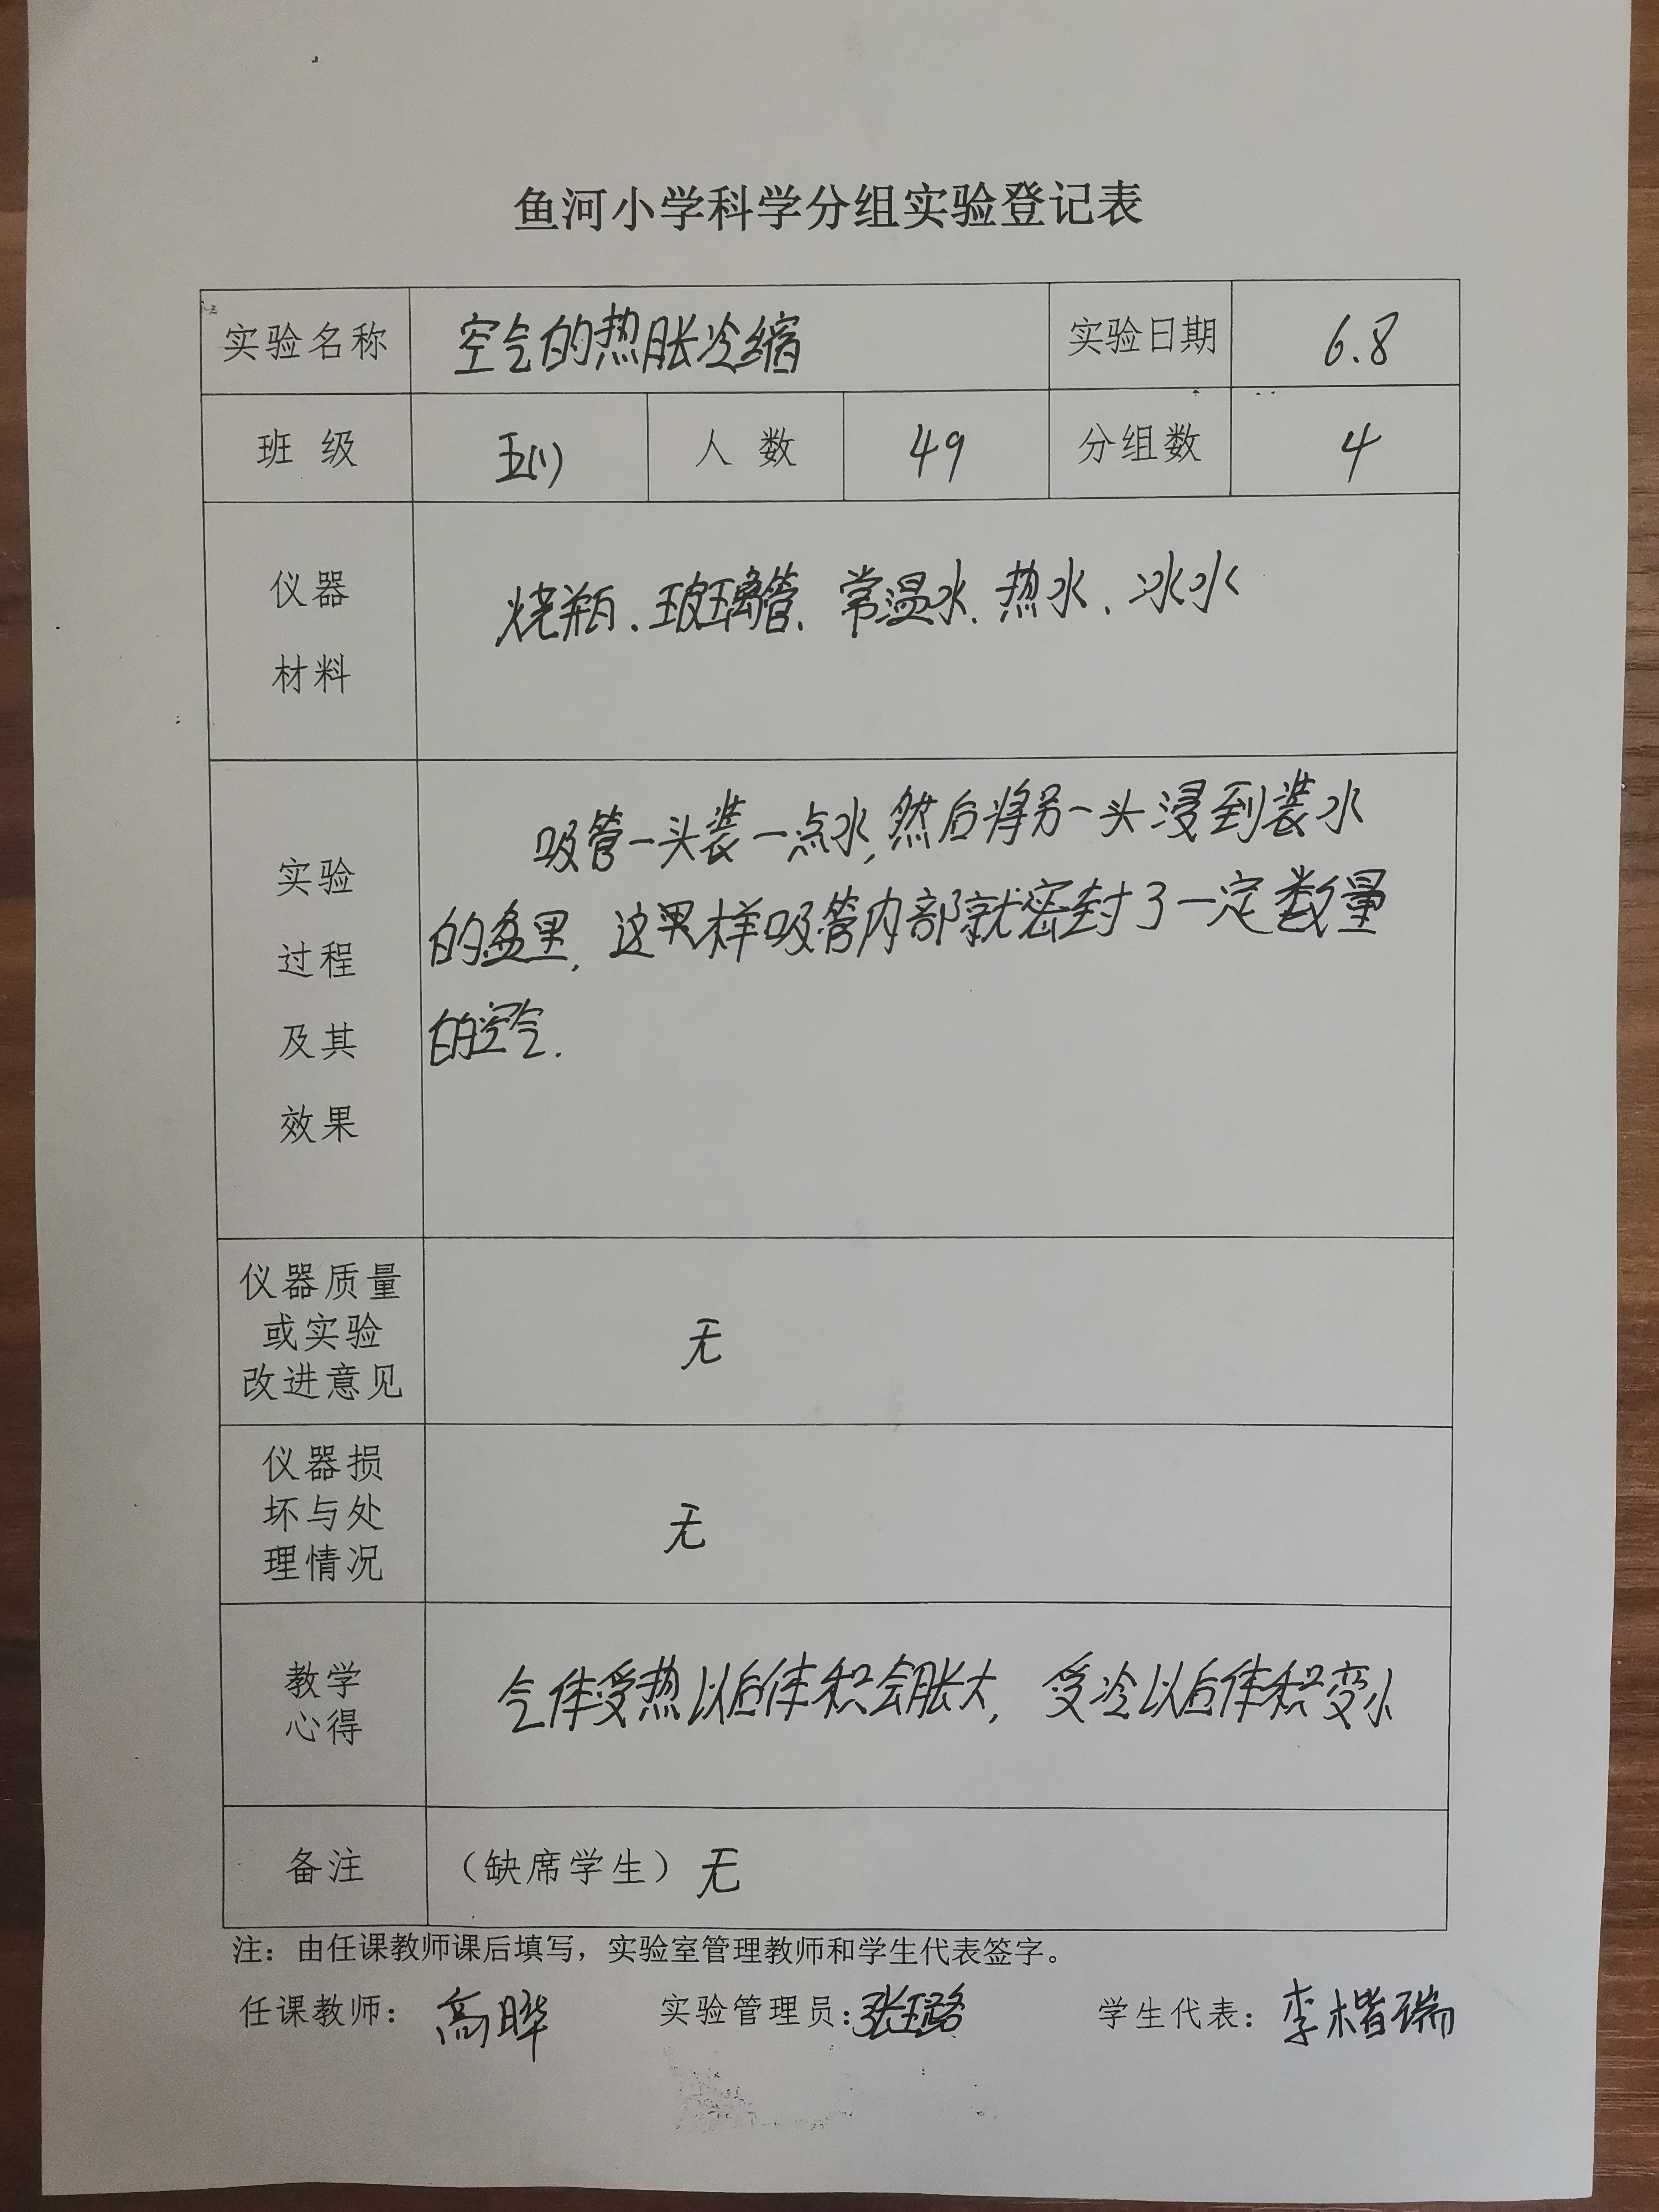 鱼河小学科学分组实验登记表
实验名称 空气的热胀冷缩 实验日期 6.8
班 级 五(1) 人 数 49 分组数 4
仪器
材料
烧瓶、玻璃管、常温水、热水、冰水
实验
过程
及其
效果
吸管一头装一点水,然后将另一头浸到装水
的盆里,这果样吸管内部就密封了一定数量
的空气.
仪器质量
或实验
改进意见
无
仪器损
坏与处
理情况
无
教学
心得
气体受热以后体积会胀大,受冷以后体积变小
备注 (缺席学生)无
注:由任课教师课后填写,实验室管理教师和学生代表签字。
任课教师:高晔 实验管理员:张璐 学生代表:李楷瑞